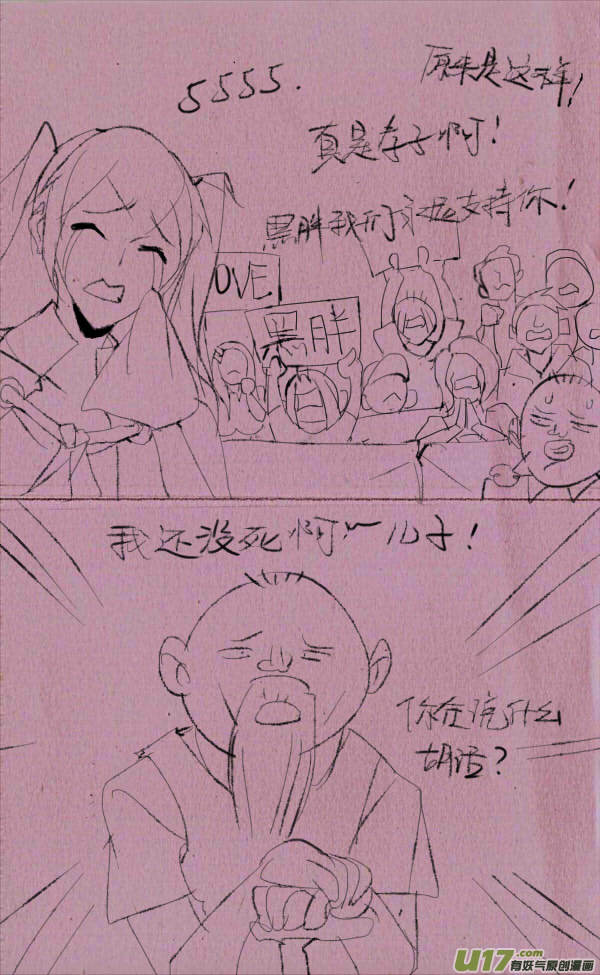 5555.
原来是这样！
真是孝子啊！
黑胖我们永远支持你！
OVE
黑胖
我还没死啊~儿子！
你在说什么
胡话？
U17.com
有妖气原创漫画